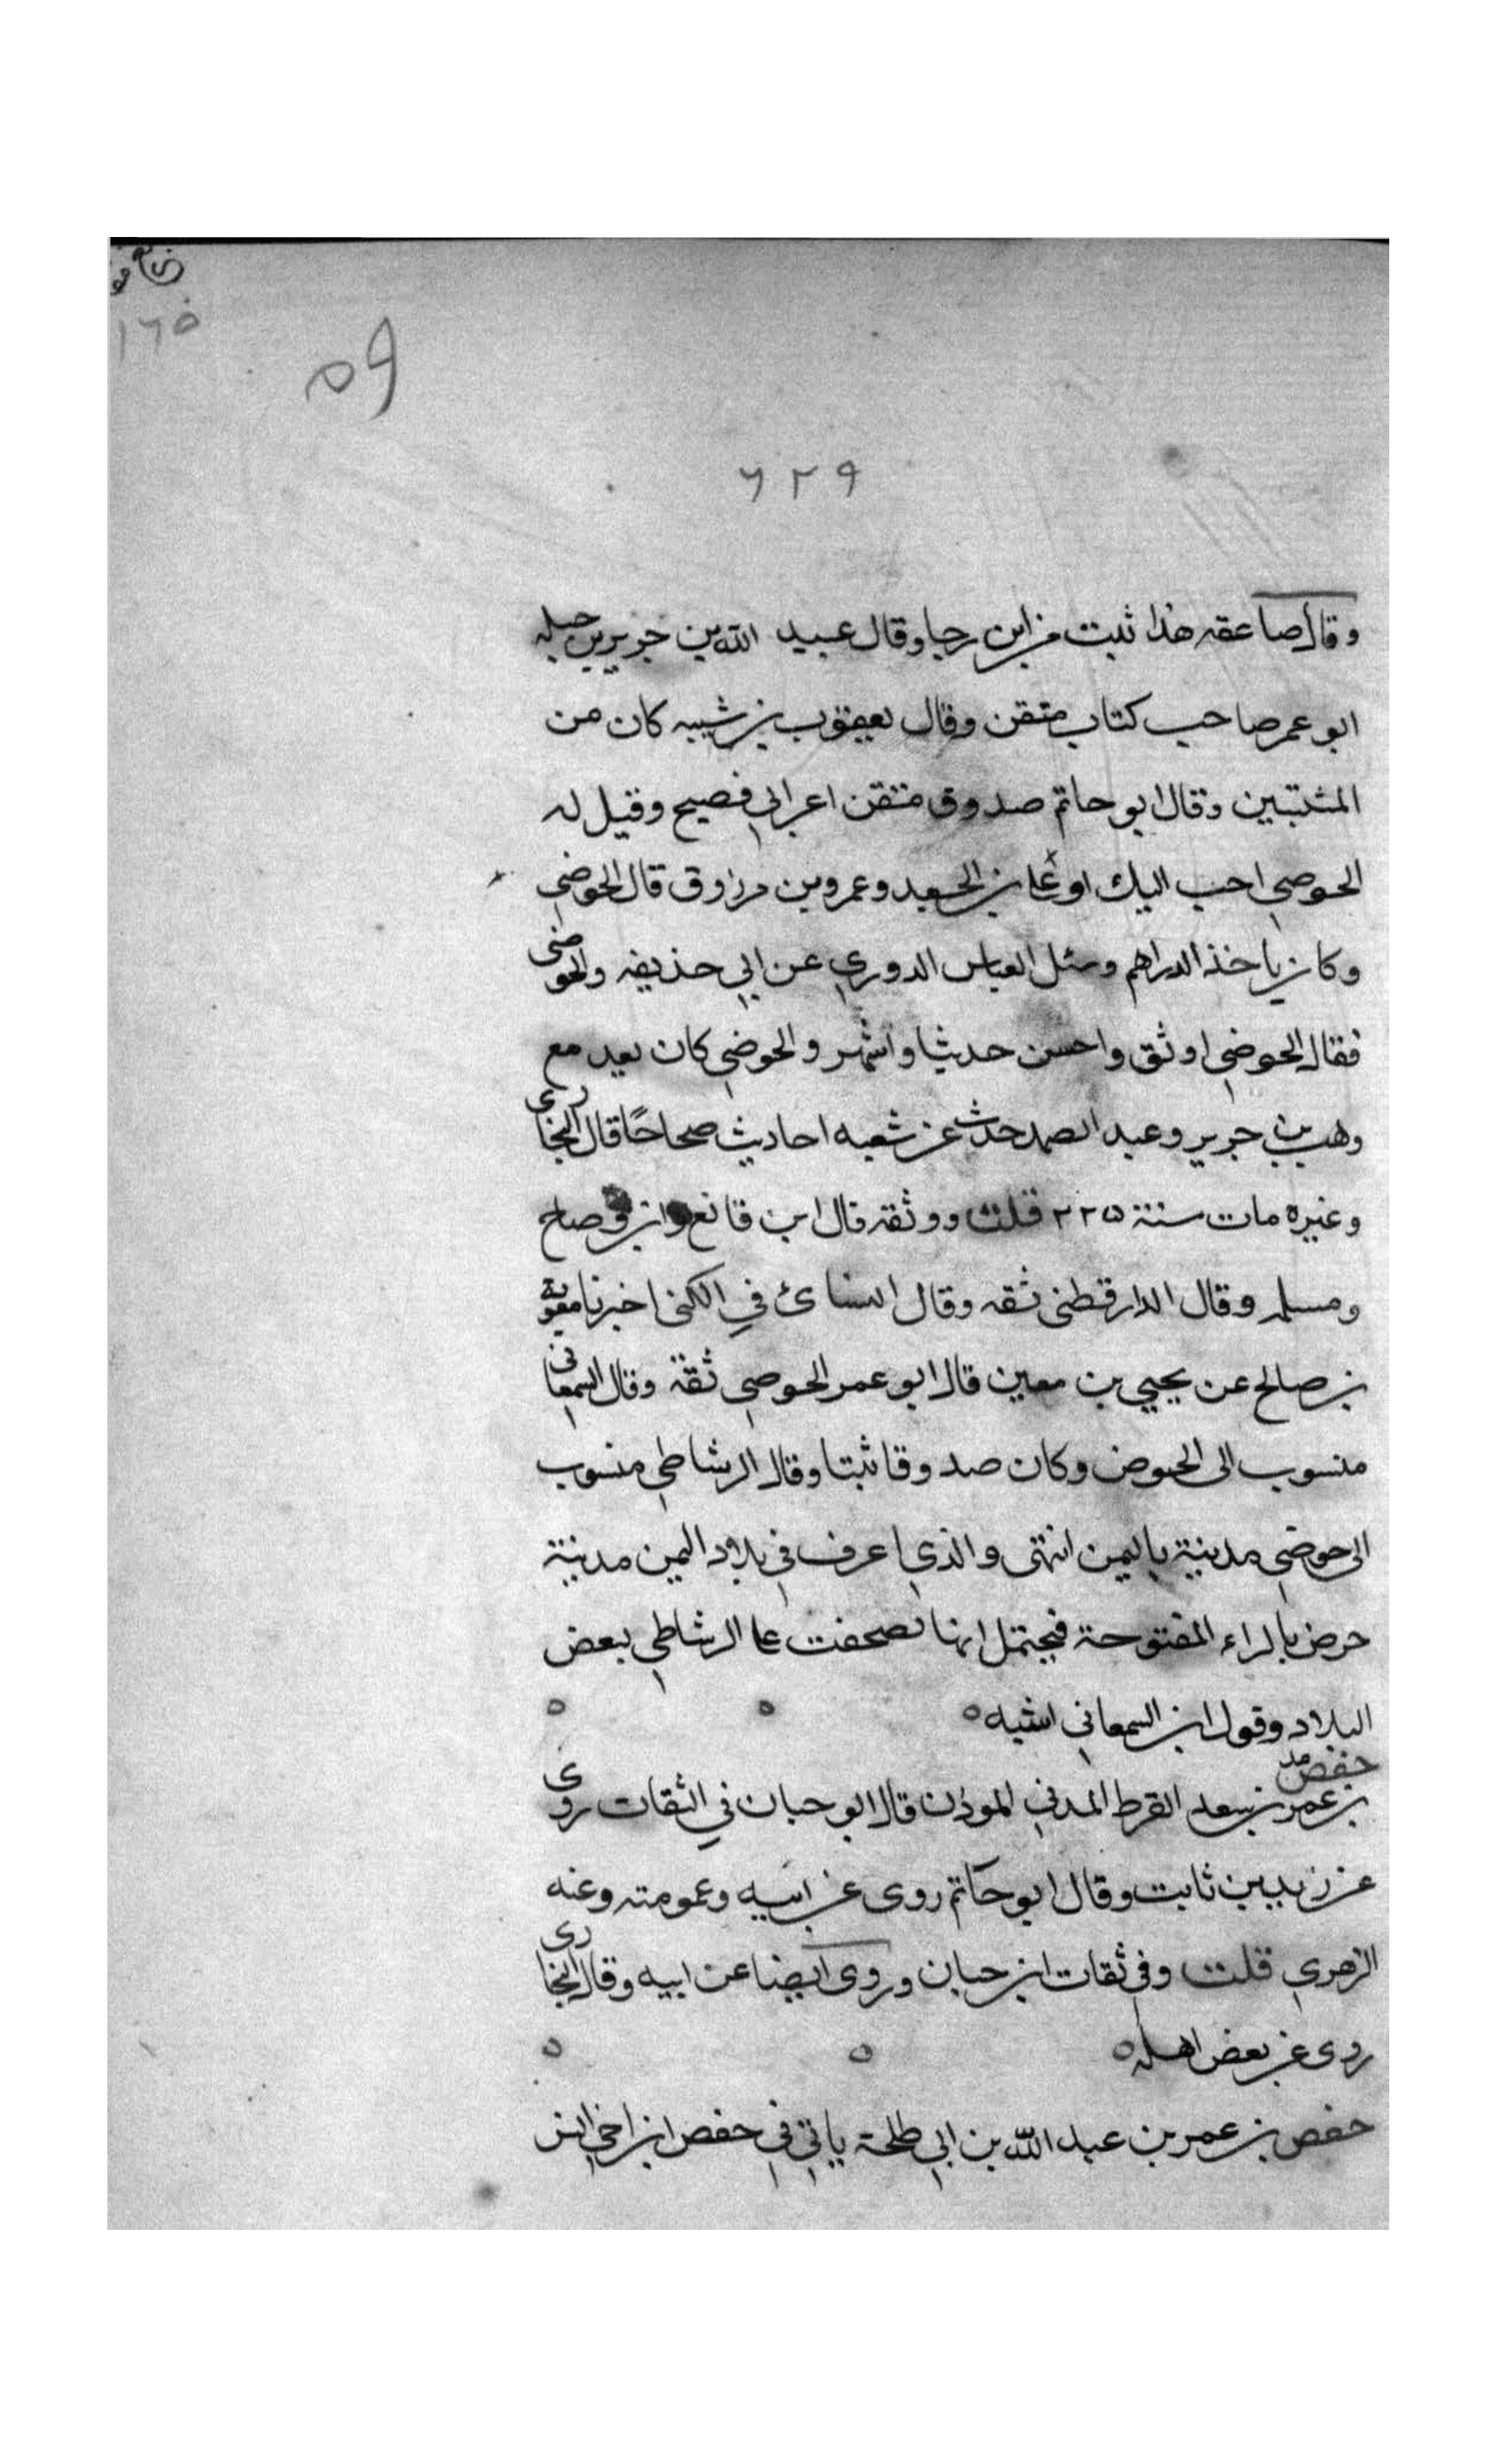 ١٦٥
٥٩
٦٢٩
وقال صاعقه هذا ثبت من ابن رجا وقال عبيد الله بن جرير بن جبله
ابو عمر صاحب كتاب متقن وقال يعقوب بن شيبه كان من
المثبتين وقال ابو حاتم صدوق متقن اعرابي فصيح وقيل له
الحوضي احب اليك او علي بن الجعد وعمرو بن مرزوق قال الحوضي
وكان ياخذ الدراهم وسئل العباس الدوري عن ابي حذيفه والحوضى
فقال الحوضي اوثق واحسن حديثا واشهر والحوضي كان يعد مع
وهب بن جرير وعبد الصمد حدث عن شعبه احاديث صحاحًا قال البخارى
وغيره مات سنة ٢٢٥ قلت ووثقه قال ابن قانع وابن وضاح
ومسلمه وقال الدارقطنى ثقه وقال النسائ في الكنى اخبرنا معوية
بن صالح عن يحيي بن معين قال ابو عمر الحوصي ثقة وقال السمعانى
منسوب الى الحوض وكان صدوقا ثبتا وقال الرشاطي منسوب
الى حوضي مدينة باليمن انتهى والذي اعرف في بلاد اليمن مدينة
حرض بالراء المفتوحة فيحتمل انها تصحفت علي الرشاطي ببعض
البلاد وقول ابن السمعاني اشبه ه
حفص مد
بن عمر بن سعد القرظ المدني الموذن قال ابو حبان في الثقات روى
عن زيد بن ثابت وقال ابو حاتم روى عن ابيه وعمومته وعنه
الزهري قلت وفي ثقات ابن حبان وروى ايضا عن ابيه وقال البخارى
روى عن بعض اهله ه
حفص بن عمر بن عبد الله بن ابي طلحة ياتي في حفص ابن اخي انس